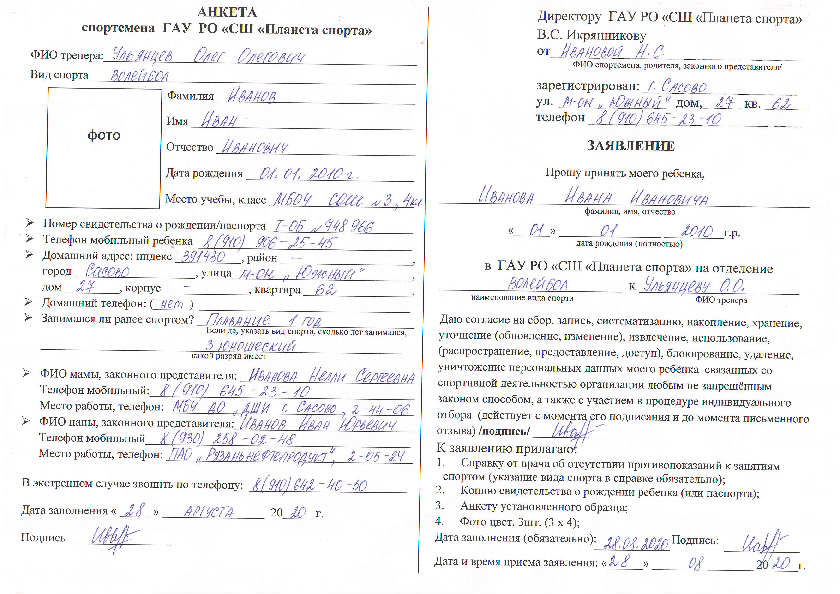 АНКЕТА
спортсмена ГАУ РО «СШ «Планета спорта»
ФИО тренера: Ульянцев Олег Олегович
Вид спорта Волейбол
фото
Фамилия Иванов
Имя Иван
Отчество Иванович
Дата рождения 01.01.2010 г.
Место учебы, класс МБОУ СОШ №3, 4кл
Номер свидетельства о рождении/паспорта I-ОБ №948966
Телефон мобильный ребенка 8(910) 906-25-45
Домашний адрес: индекс 391430, район —,
город Сасово, улица м-он „Южный",
дом 27, корпус —, квартира 62
Домашний телефон: (нет)
Занимался ли ранее спортом? Плавание 1 год
(если да, указать вид спорта, сколько лет занимался,
3 юношеский
какой разряд имеет
ФИО мамы, законного представителя: Иванова Нелли Сергеевна
Телефон мобильный: 8(910) 645-23-10
Место работы, телефон: МБУ ДО „ДШИ г. Сасово, 2-44-06
ФИО папы, законного представителя: Иванов Иван Юрьевич
Телефон мобильный 8(930) 258-02-48
Место работы, телефон: ПАО „Рязаньнефтепродукт", 2-05-24
В экстренном случае звонить по телефону: 8(910)642-40-50
Дата заполнения «28» августа 2020 г.
Подпись
Директору ГАУ РО «СШ «Планета спорта»
В.С. Икрянникову
от Ивановой Н.С.
ФИО спортсмена, родителя, законного представителя/
зарегистрирован: г. Сасово
ул. м-он „Южный" дом, 27 кв. 62
телефон 8(910) 645-23-10
ЗАЯВЛЕНИЕ
Прошу принять моего ребенка,
Иванова Ивана Ивановича
фамилия, имя, отчество
«01» 01 2010 г.р.
дата рождения (полностью)
в ГАУ РО «СШ «Планета спорта» на отделение
волейбол к Ульянцеву О.О.
наименование вида спорта ФИО тренера
Даю согласие на сбор, запись, систематизацию, накопление, хранение,
уточнение (обновление, изменение), извлечение, использование,
(распространение, предоставление, доступ), блокирование, удаление,
уничтожение персональных данных моего ребенка связанных со
спортивной деятельностью организации любым не запрещённым
законом способом, а также с участием в процедуре индивидуального
отбора (действует с момента его подписания и до момента письменного
отзыва) /подпись/
К заявлению прилагаю:
1. Справку от врача об отсутствии противопоказаний к занятиям
спортом (указание вида спорта в справке обязательно);
2. Копию свидетельства о рождении ребенка (или паспорта);
3. Анкету установленного образца;
4. Фото цвет. 3шт. (3 х 4);
Дата заполнения (обязательно): 28.08.2020 Подпись:
Дата и время приема заявления: «28» 08 2020г.